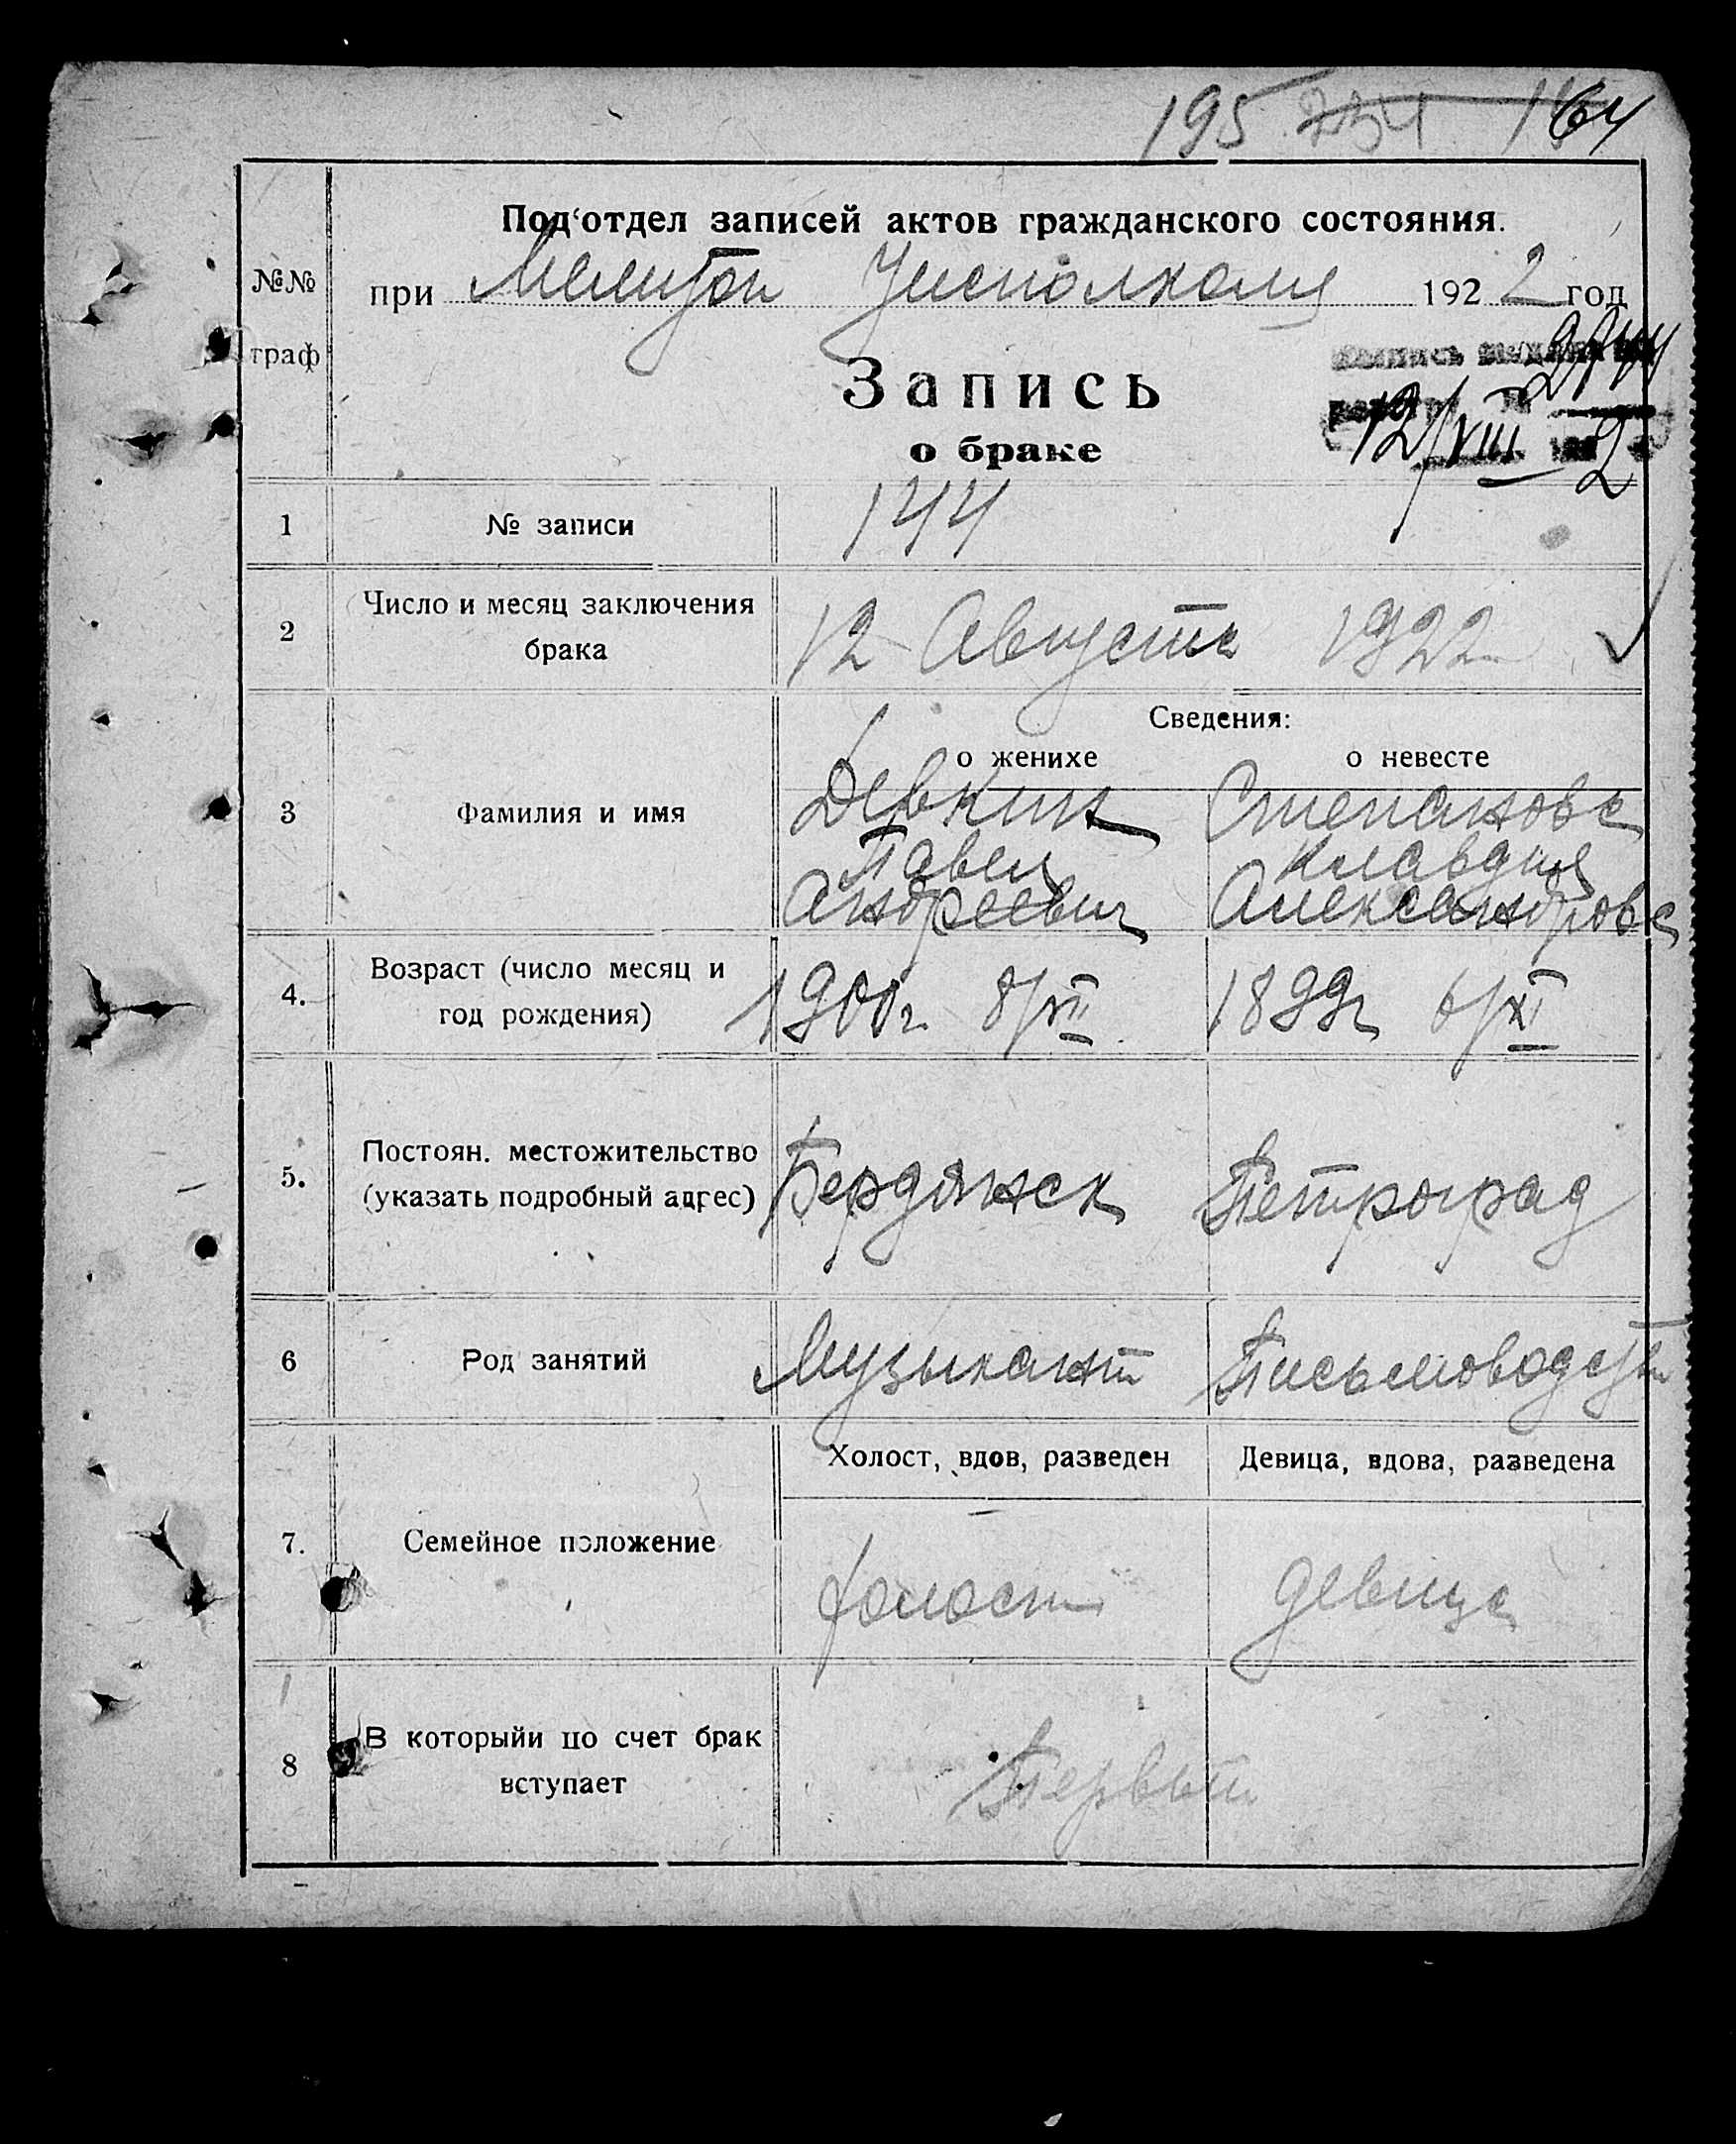 195 64
Под'отдел записей актов гражданского состояния.
№№ при Мелитоп Уисполкома 1922 год
граф
Запись
о браке
12/VIII 2
1 № записи 144
2 Число и месяц заключения 12 Августа 1922
брака
Сведения:
о женихе о невесте
3 Фамилия и имя Девкин Степанова
Павел Клавдия
Андреевич Александровна
4. Возраст (число месяц и
год рождения) 1900г. 1899г 6/XI
5. Постоян. местожительство
(указать подробный адрес) Бердянск Петроград
6 Род занятий Музыкант
Холост, вдов, разведен Девица, вдова, разведена
7. Семейное положение холост девица
8 В которыйи по счет брак
вступает Первый